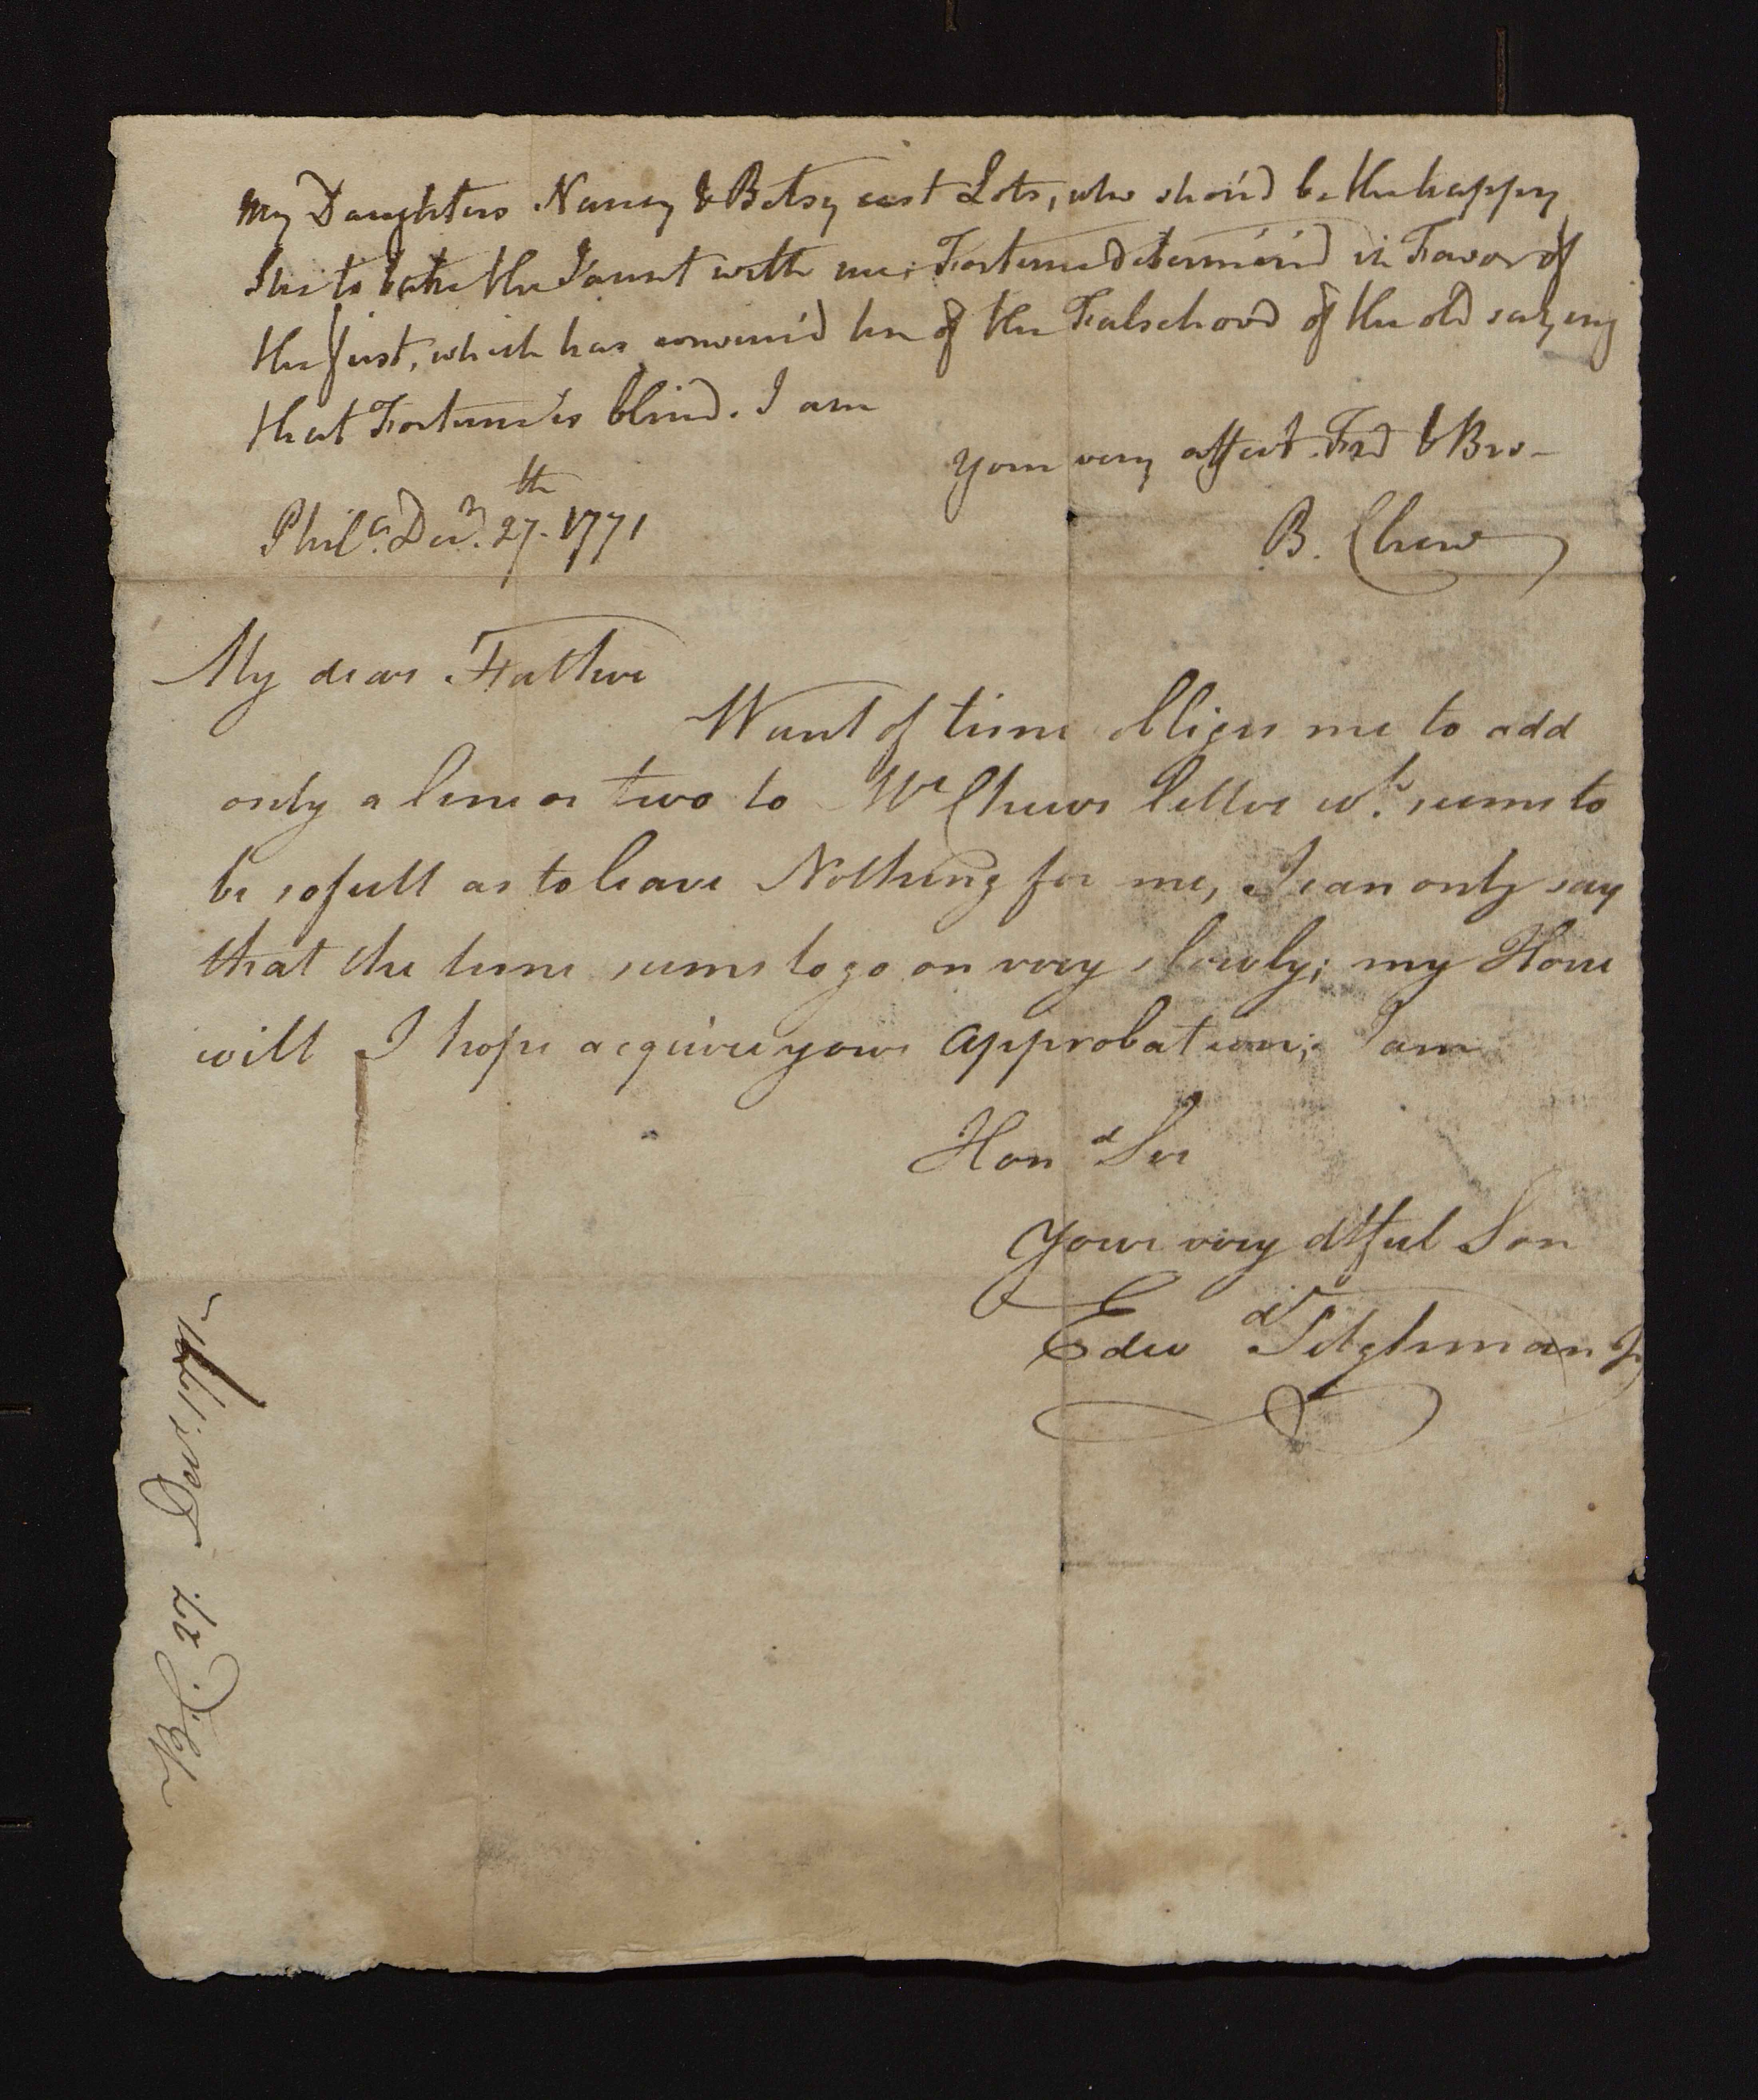 My Daughters Nancy & Betsy cast Lots, who shou'd be the happy
She to take the Jaunt with me; Fortune determin'd in Favor of
the first, which has convinc'd her of the Falsehood of the old saying
that Fortune is blind. I am
Your very affect. Frd & Bro-
B. Chew
Phila. Decr. 27th. 1771
My dear Father
Want of time obliges me to add
only a line or two to Mr Chews letter wh. seems to
be so full as to leave Nothing for me, I can only say
that the time seems to go on very slowly; my Horse
will I hope acquire your approbation; I am
Hond Sir
Your very dtful Son
Edwd Tilghman Jr
B. C. 27. Decr. 1771